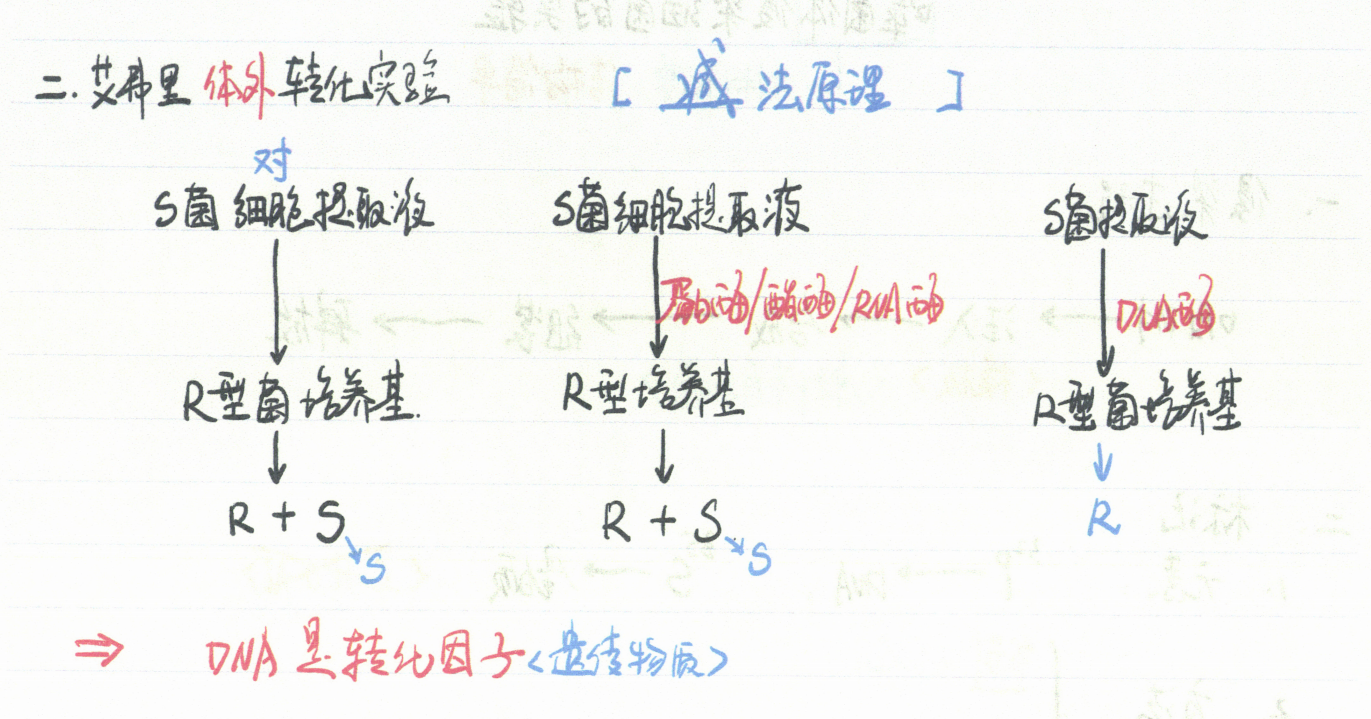 二. 艾弗里 体外 转化实验 [ 减 法原理 ]
对
S菌 细胞提取液 S菌细胞提取液 S菌提取液
蛋白酶/酯酶/RNA酶 DNA酶
R型菌培养基. R型培养基 R型菌培养基
R + S R + S R
S S
⇒ DNA 是 转化因子<遗传物质>